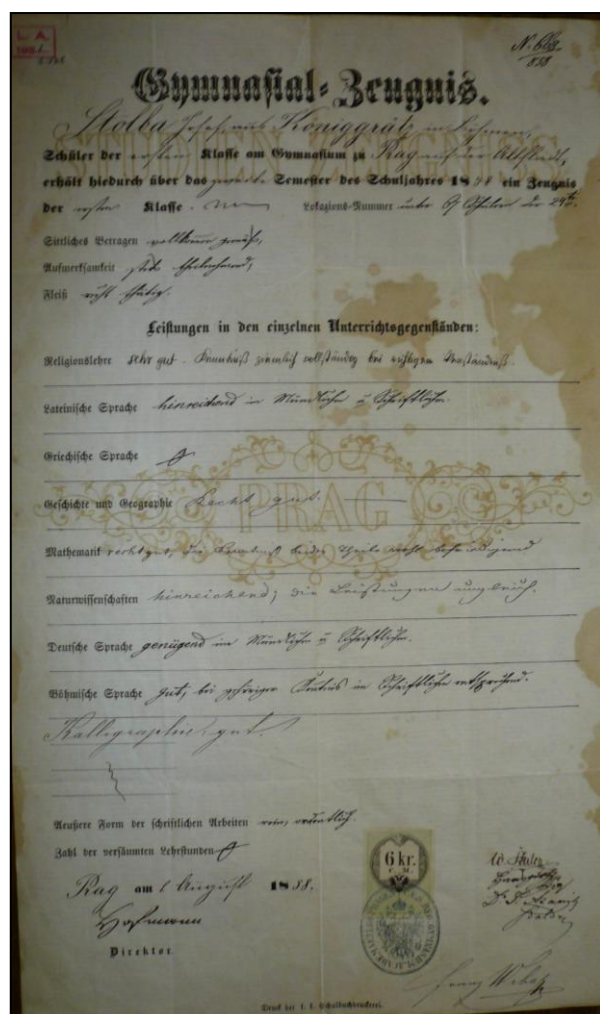 L. A.
N. 669
858
Gymnasial-Zeugnis.
Stolba Josef aus Königgrätz in Böhmen,
Schüler der ersten Klasse am Gymnasium zu Prag auf der Altstadt,
erhält hiedurch über das zweite Semester des Schuljahres 1858 ein Zeugnis
der ersten Klasse. Lokazions-Nummer unter 69 Schülern die 29te.
Sittliches Betragen vollkommen gemäß,
Aufmerksamkeit stets theilnehmend,
Fleiß recht thätig.
Leistungen in den einzelnen Unterrichtsgegenständen:
Religionslehre sehr gut - Kenntniß ziemlich vollständig bei richtigem Verständniß.
Lateinische Sprache hinreichend im Mündlichen u Schriftlichen.
Griechische Sprache
Geschichte und Geographie Recht gut.
PRAG
Mathematik recht gut, die Kenntniß beider Theile recht befriedigend
Naturwissenschaften hinreichend; die Leistungen ungleich.
Deutsche Sprache genügend im Mündlichen u Schriftlichen.
Böhmische Sprache gut, bei gehöriger Kentnis im Schriftlichen entsprechend.
Kalligraphie, gut.
Aeußere Form der schriftlichen Arbeiten rein, ordentlich.
Zahl der versäumten Lehrstunden
Prag am 1 August 1858.
6 kr.
C. M.
Hofmann
Direktor.
Franz Weber
Druck der k. k. Schulbuchdruckerei.